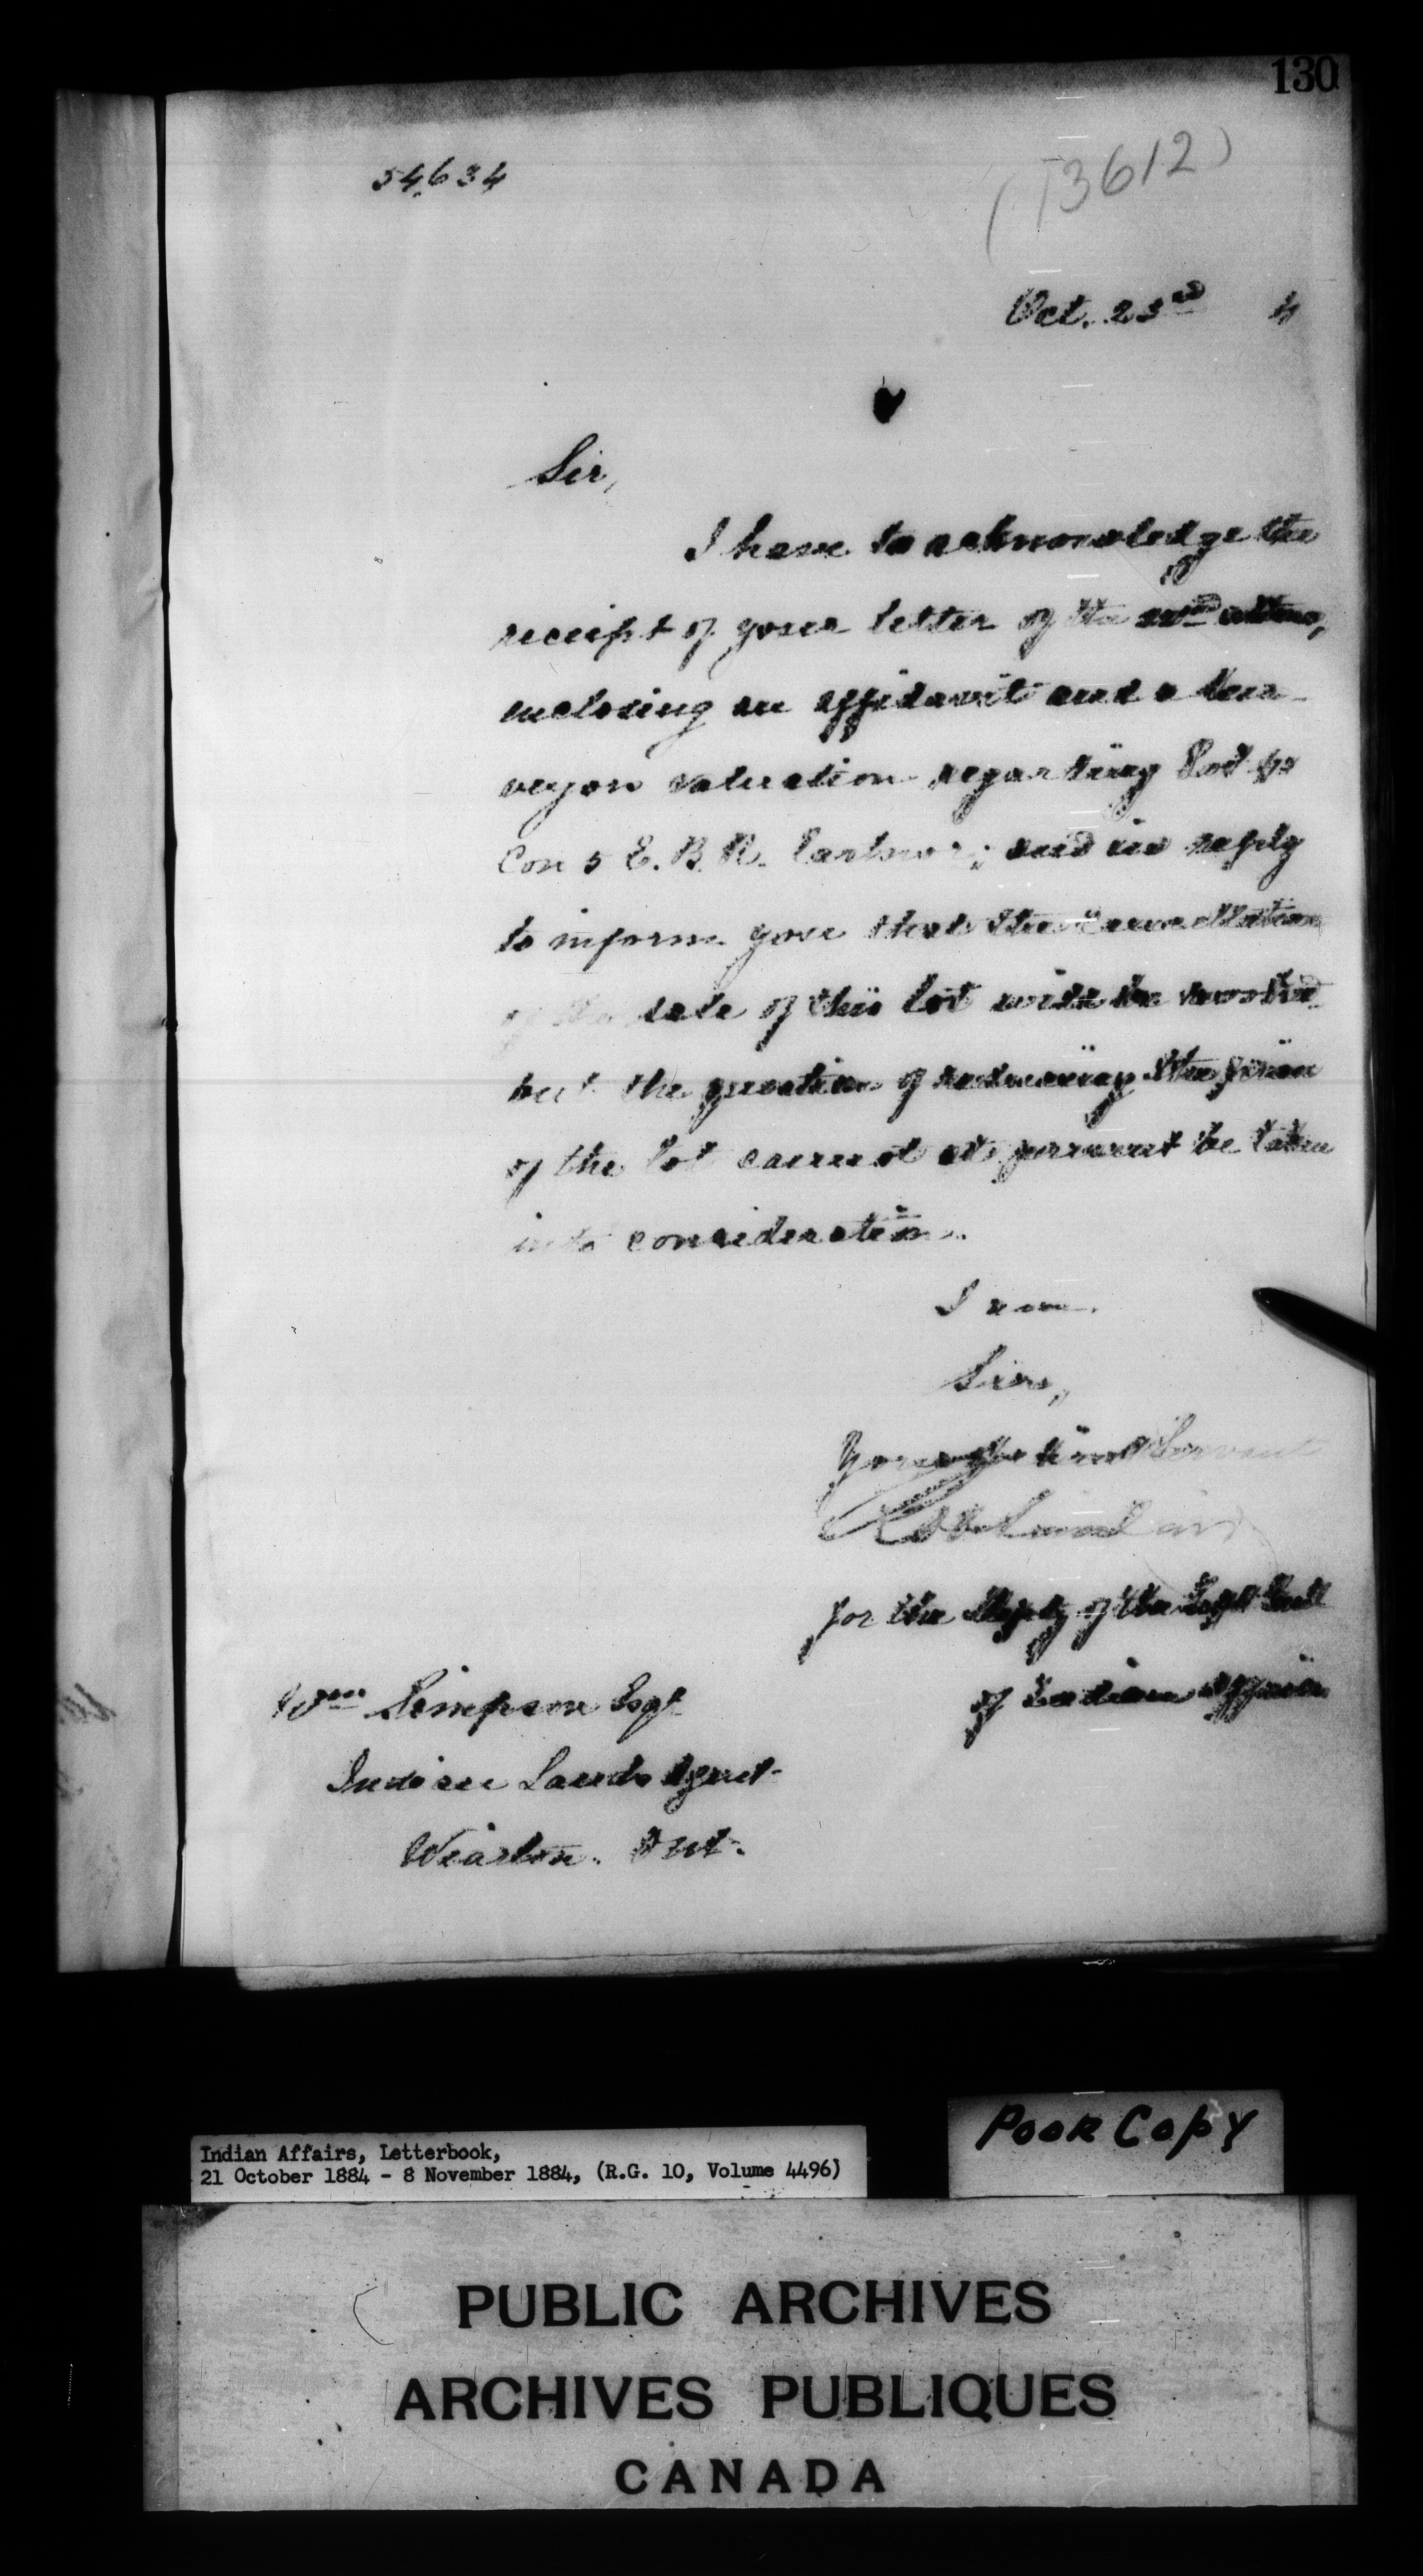 130
54,634
(T3612)
Oct. 23rd 4
Sir,
I have to acknowledge the
receipt of your letter of the ultimo,
inclosing an affidavit and a
valuation regarding Lot
Con 5 E. B. R. Eastnor; and in reply
to inform you that the cancellation
of the sale of this lot will be
but the question of reducing the price
of the lot cannot at present be taken
into consideration.
I am.
Sir,
Your Servant
for the Deputy of the Supt Genl
of Indian Affairs
Wm Simpson Esqr
Indian Lands Agent
Wiarton. Ont.
Poor Copy
Indian Affairs, Letterbook,
21 October 1884 - 8 November 1884, (R.G. 10, Volume 4496)
PUBLIC ARCHIVES
ARCHIVES PUBLIQUES
CANADA